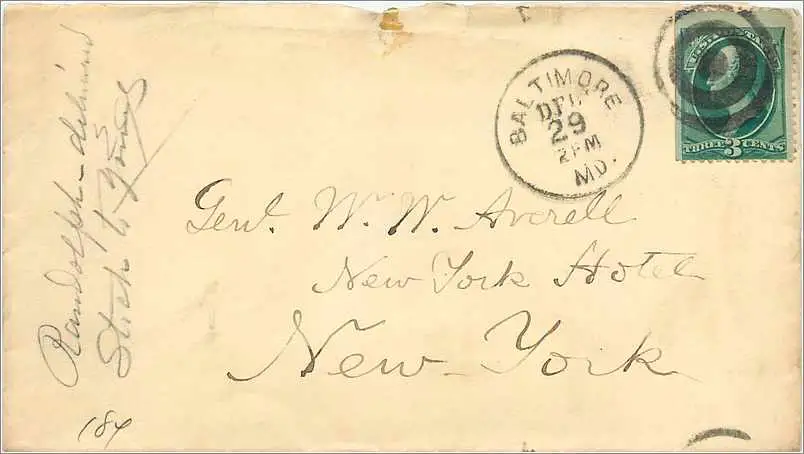 Randolph – delivered
Stock to Young
184
BALTIMORE
DEC
29
2PM
MD.
THREE 3 CENTS
Genl. W. W. Averell
New York Hotel
New York